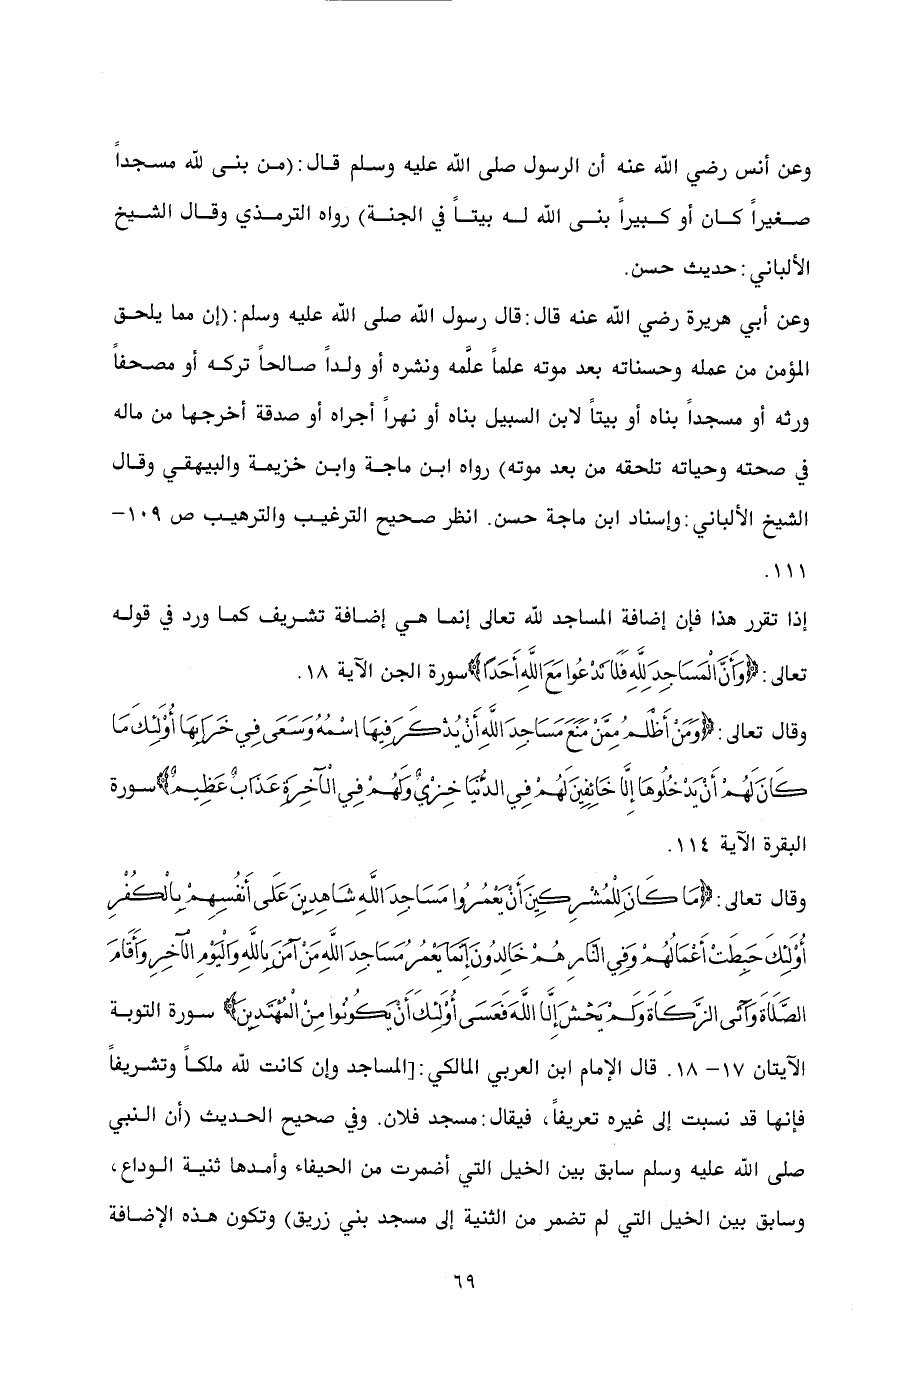 وعن أنس رضي الله عنه أن الرسول صلى الله عليه وسلم قال:(من بنى لله مسجداً
صغيراً كان أو كبيراً بنى الله له بيتاً في الجنة) رواه الترمذي وقال الشيخ
الألباني:حديث حسن.
وعن أبي هريرة رضي الله عنه قال:قال رسول الله صلى الله عليه وسلم:(إن مما يلحق
المؤمن من عمله وحسناته بعد موته علماً علَّمه ونشره أو ولداً صالحاً تركه أو مصحفاً
ورثه أو مسجداً بناه أو بيتاً لابن السبيل بناه أو نهراً أجراه أو صدقة أخرجها من ماله
في صحته وحياته تلحقه من بعد موته) رواه ابن ماجة وابن خزيمة والبيهقي وقال
الشيخ الألباني:وإسناد ابن ماجة حسن. انظر صحيح الترغيب والترهيب ص ١٠٩-
١١١.
إذا تقرر هذا فإن إضافة المساجد لله تعالى إنما هي إضافة تشريف كما ورد في قوله
تعالى:﴿وَأَنَّ الْمَسَاجِدَ لِلَّهِ فَلَا تَدْعُوا مَعَ اللَّهِ أَحَدًا﴾سورة الجن الآية ١٨.
وقال تعالى:﴿وَمَنْ أَظْلَمُ مِمَّنْ مَنَعَ مَسَاجِدَ اللَّهِ أَنْ يُذْكَرَ فِيهَا اسْمُهُ وَسَعَى فِي خَرَابِهَا أُوْلَئِكَ مَا
كَانَ لَهُمْ أَنْ يَدْخُلُوهَا إِلَّا خَائِفِينَ لَهُمْ فِي الدُّنْيَا خِزْيٌ وَلَهُمْ فِي الْآخِرَةِ عَذَابٌ عَظِيمٌ﴾سورة
البقرة الآية ١١٤.
وقال تعالى:﴿مَا كَانَ لِلْمُشْرِكِينَ أَنْ يَعْمُرُوا مَسَاجِدَ اللَّهِ شَاهِدِينَ عَلَى أَنفُسِهِمْ بِالْكُفْرِ
أُوْلَئِكَ حَبِطَتْ أَعْمَالُهُمْ وَفِي النَّارِ هُمْ خَالِدُونَ إِنَّمَا يَعْمُرُ مَسَاجِدَ اللَّهِ مَنْ آمَنَ بِاللَّهِ وَالْيَوْمِ الْآخِرِ وَأَقَامَ
الصَّلَاةَ وَآتَى الزَّكَاةَ وَلَمْ يَخْشَ إِلَّا اللَّهَ فَعَسَى أُوْلَئِكَ أَنْ يَكُونُوا مِنْ الْمُهْتَدِينَ﴾ سورة التوبة
الآيتان ١٧- ١٨. قال الإمام ابن العربي المالكي:[المساجد وإن كانت لله ملكاً وتشريفاً
فإنها قد نسبت إلى غيره تعريفاً، فيقال:مسجد فلان. وفي صحيح الحديث (أن النبي
صلى الله عليه وسلم سابق بين الخيل التي أضمرت من الحيفاء وأمدها ثنية الوداع،
وسابق بين الخيل التي لم تضمر من الثنية إلى مسجد بني زريق) وتكون هذه الإضافة
٦٩